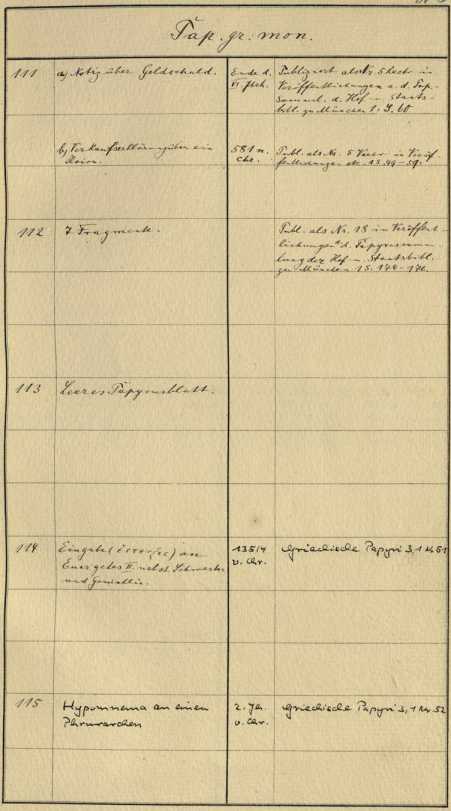 Pap. gr. mon.
111 a) Notiz über Geldschuld. Ende d. Publiziert als Nr. 5 Recto in
VI. Jhh. Veröffentlichungen a. d. Pap.
Samml. d. Hof- u. Staats-
bibl. zu München I. S. 60
b) Verkaufserklärung über ein 581 n. Publ. als Nr. 5 Verso in Veröf-
Chr. fentlichungen etc. 1 S.
112 7 Fragmente. Publ. als Nr. 18 in Veröffent-
lichungen d. Papyrussamm-
lung der Hof- u. Staatsbibl.
zu München I S.
113 Leeres Papyrusblatt.
114 Eingabe an 135/4 Griechische Papyri 3, 1 Nr. 51
Euergetes II. nebst Schwester v. Chr.
und Gemahlin.
115 Hypomnema an einen 2. Jh. Griechische Papyri 3, 1 Nr. 52
Phrurarchen v. Chr.